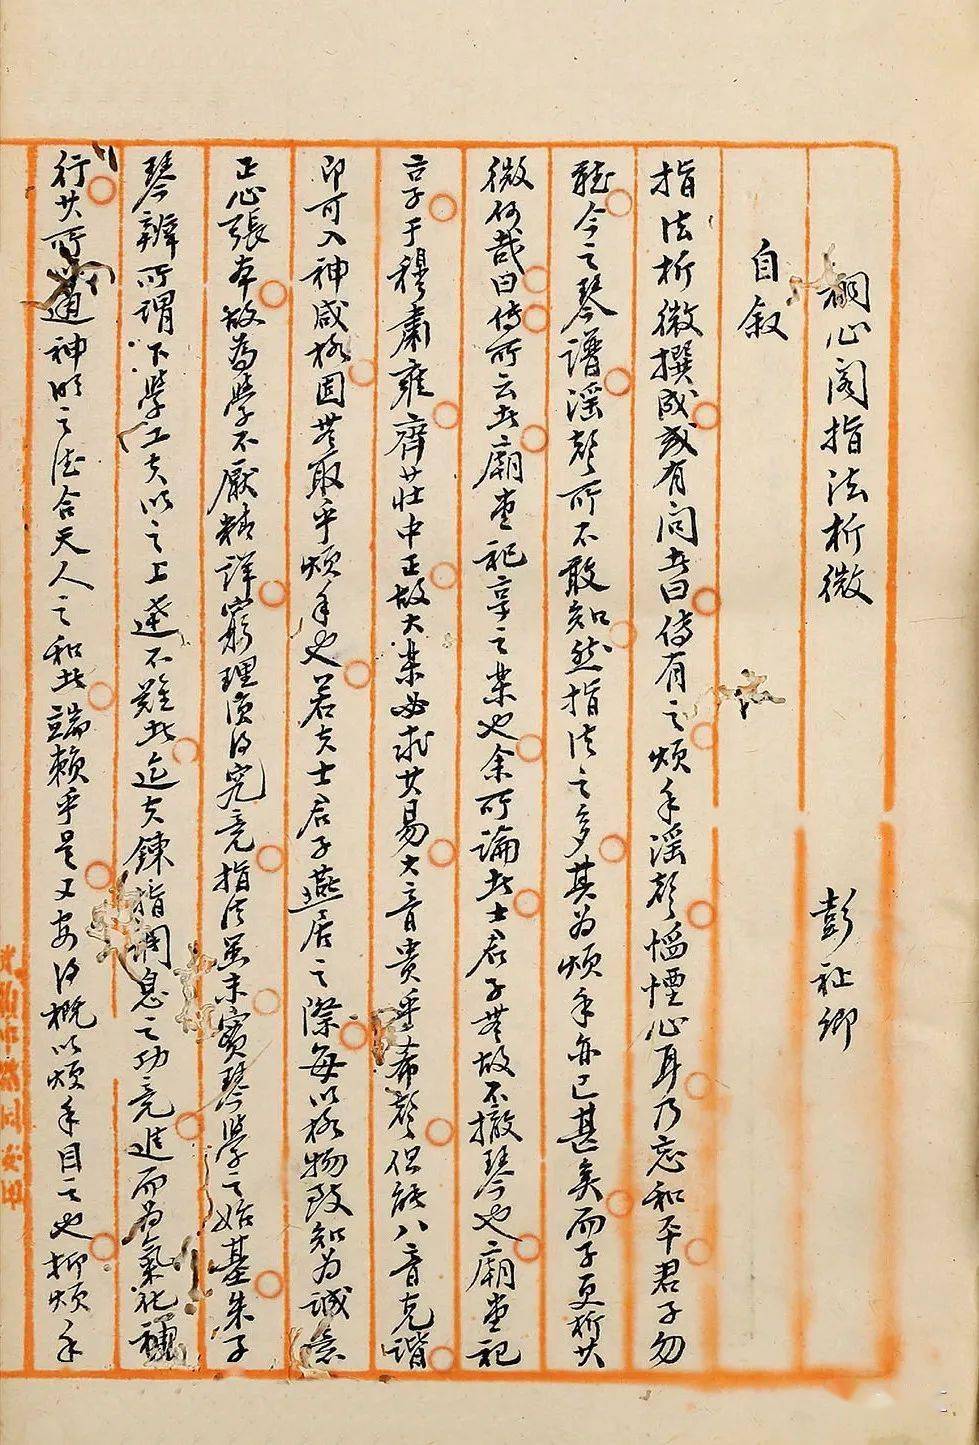 理心閣指法析微 彭祉卿
自叙
指法析微撰成或有問者曰傳有之煩手淫聲慆堙心耳乃忘和平君子勿
聽今之琴譜淫聲所不敢知然指法之多其为煩手亦已甚矣而子更析其
微何哉曰傳所云者廟堂祀享之樂也余所論者士君子無故不撤琴也廟堂祀
享于穆肅雍齊莊中正故大樂必求其易大音貴乎希聲但能八音克諧
即可入神感格固無取乎煩手也若夫士君子燕居之際每以格物致知为誠意
正心張本故為學不厭精詳窮理須得究竟指法虽末實琴學之始基朱子
琴辨所謂下學工夫以之上達不難者迨夫鍊指調息之功竟進而为氣化神
行其所通神明之德合天人之和者端賴乎是又安得概以煩手目之也抑煩手